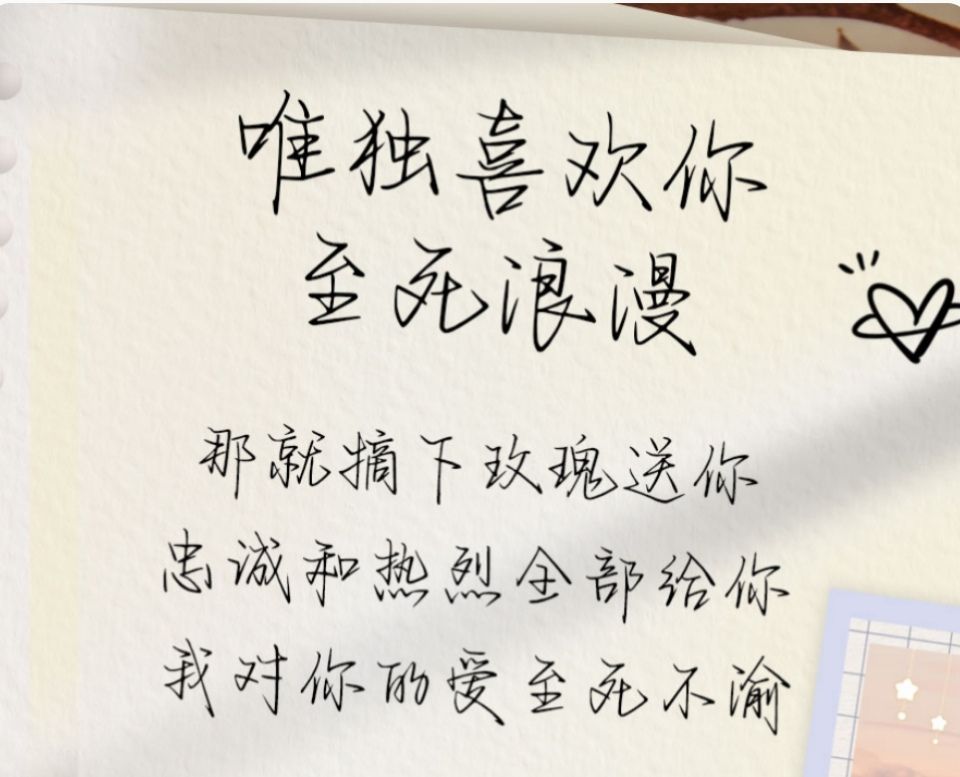 唯独喜欢你
至死浪漫
那就摘下玫瑰送你
忠诚和热烈全部给你
我对你的爱至死不渝